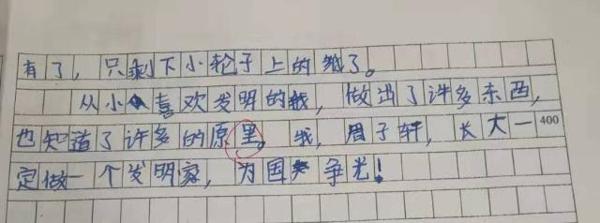 有了，只剩下小轮子上的线了。
从小喜欢发明的我，做出了许多东西，
也知道了许多的原里。我，周子轩，长大一
400
定做一个发明家，为国争光！